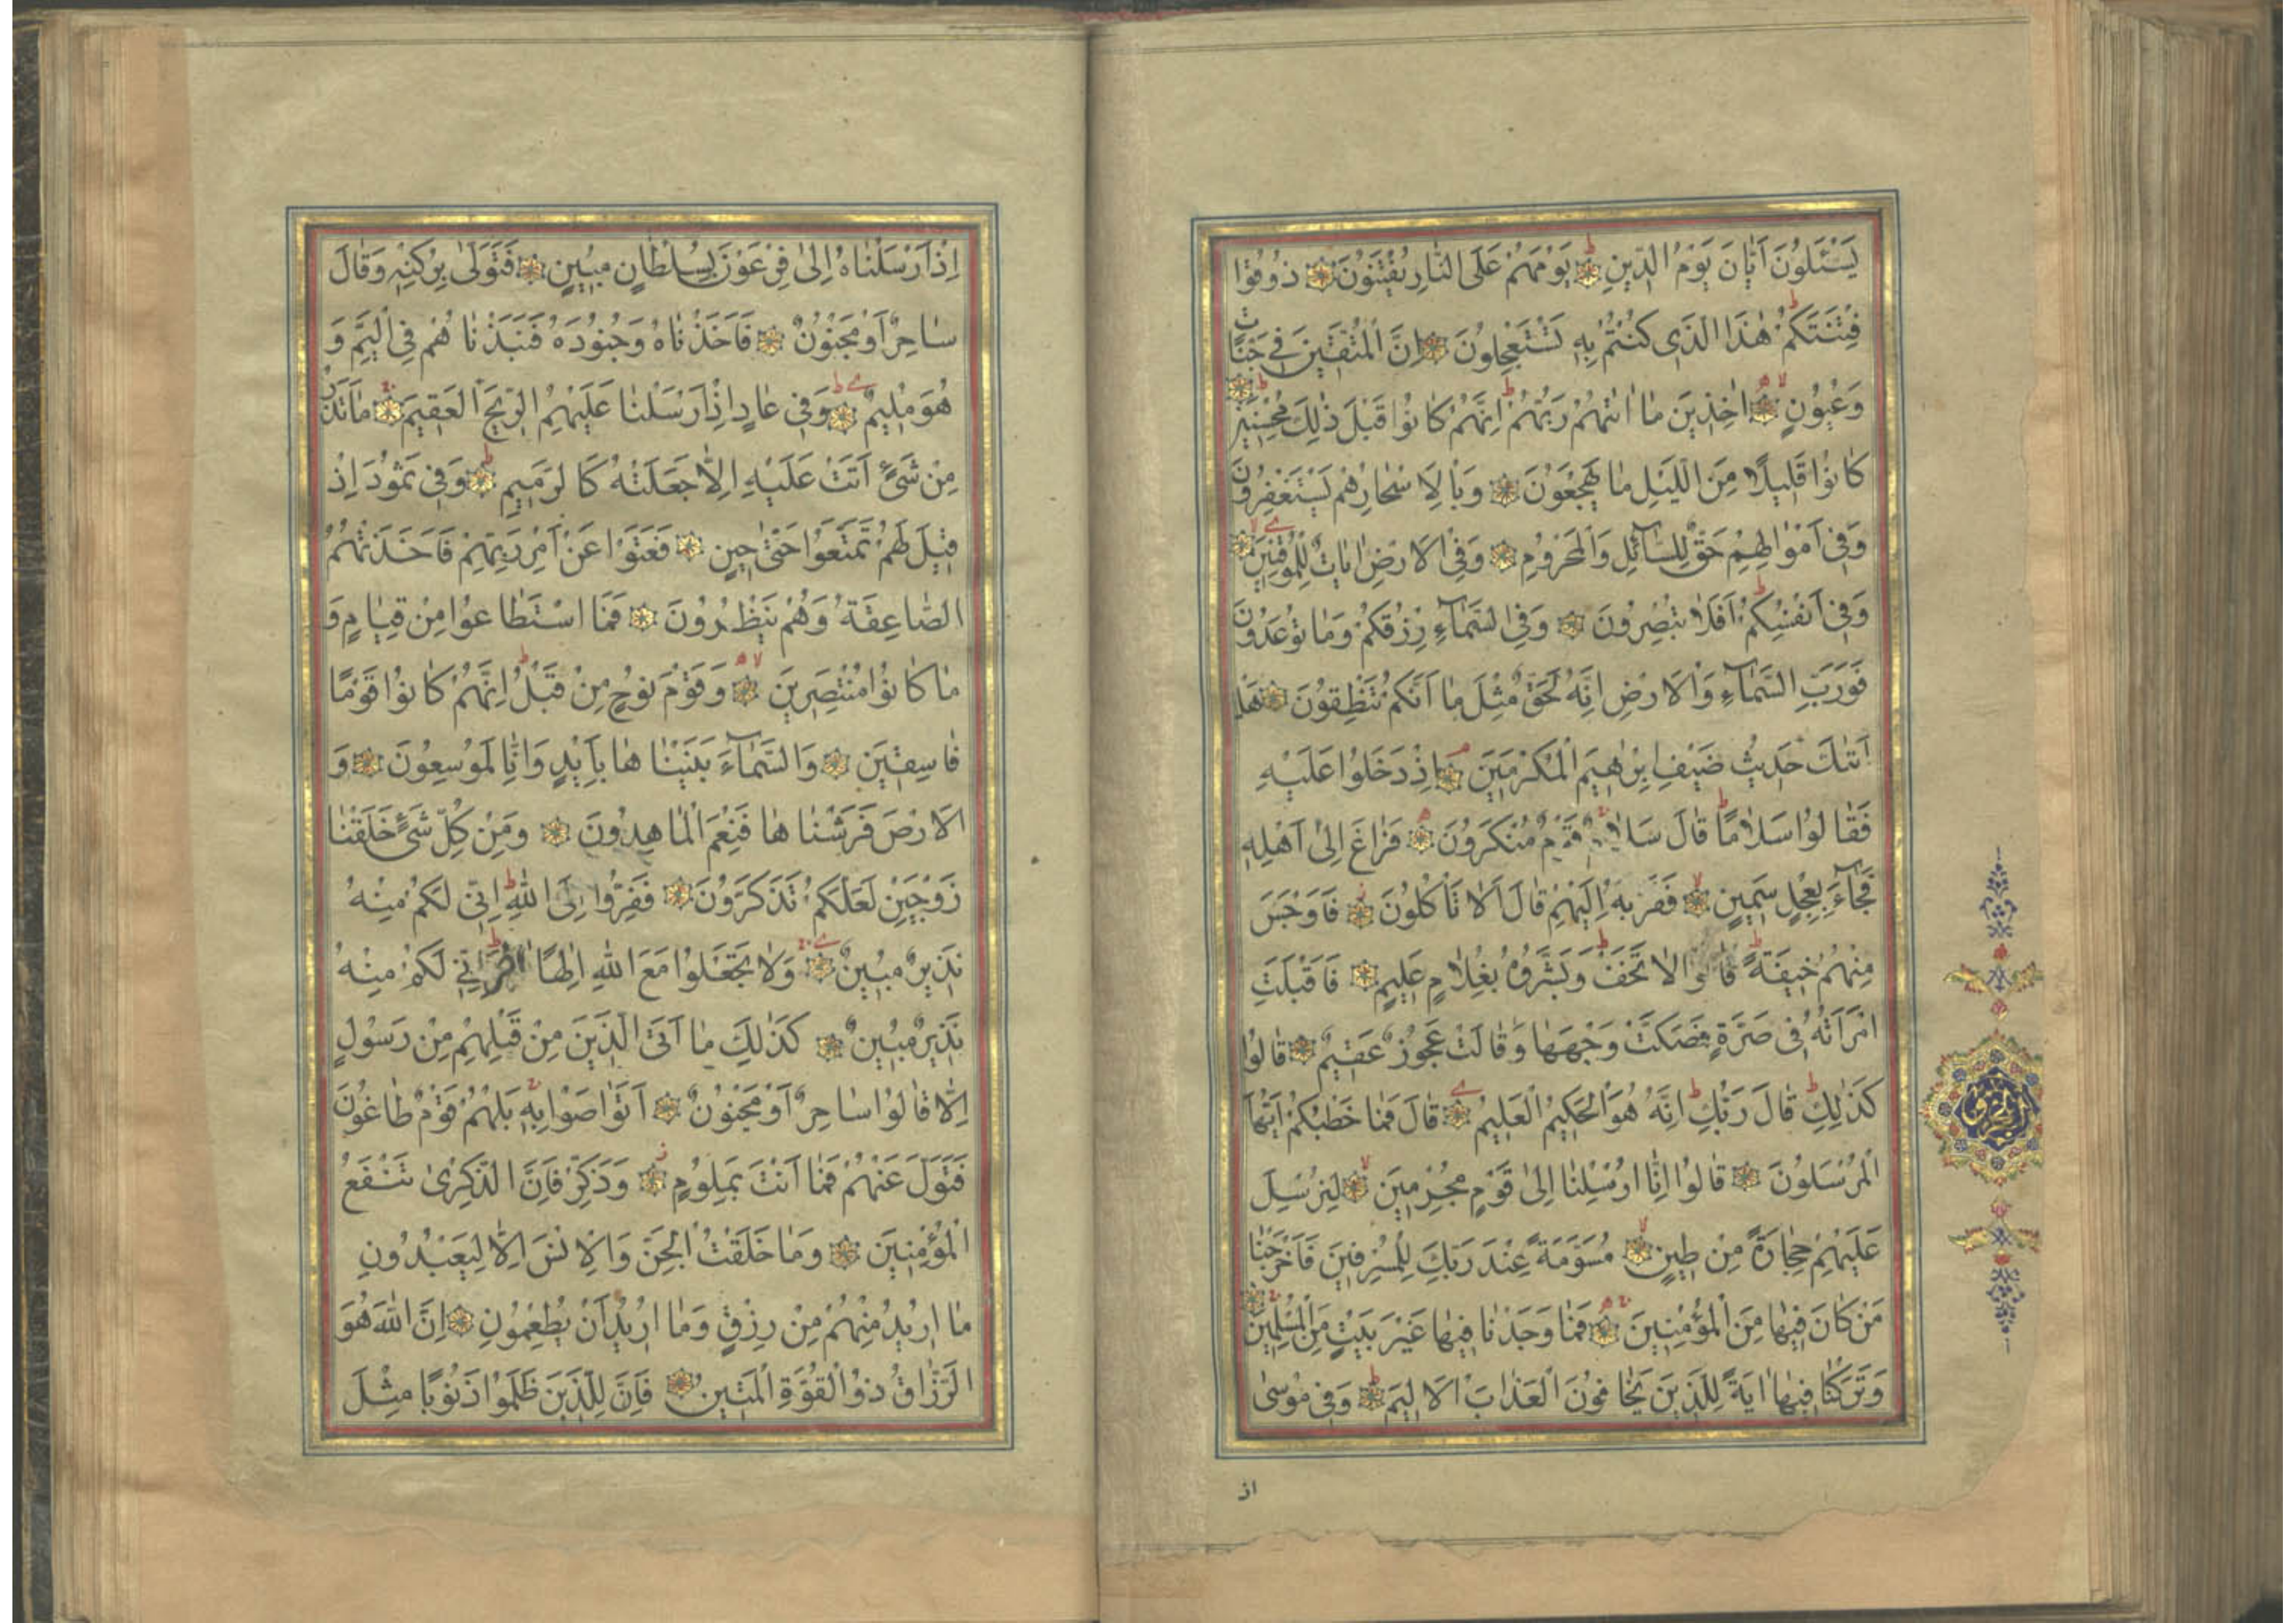 يَسْئَلُونَ اَيّٰانَ يَوْمُ الدّ۪ينِ يَوْمَهُمْ عَلَى النّٰارِ يُفْتَنُونَ ذُوقُوا
فِتْنَتَكُمْ هٰذَا الَّذ۪ى كُنْتُمْ بِه۪ تَسْتَعْجِلُونَ اِنَّ الْمُتَّق۪ينَ ف۪ى جَنّٰاتٍ
وَعُيُونٍ اٰخِذ۪ينَ مٰا اٰتٰيهُمْ رَبُّهُمْ اِنَّهُمْ كٰانُوا قَبْلَ ذٰلِكَ مُحْسِن۪ينَ
كٰانُوا قَل۪يلاً مِنَ اللَّيْلِ مٰا يَهْجَعُونَ وَبِالْاَسْحٰارِ هُمْ يَسْتَغْفِرُونَ
وَف۪ى اَمْوٰالِهِمْ حَقٌّ لِلسّٰآئِلِ وَالْمَحْرُومِ وَفِى الْاَرْضِ اٰيٰاتٌ لِلْمُوقِن۪ينَ
وَف۪ى اَنْفُسِكُمْ اَفَلاٰ تُبْصِرُونَ وَفِى السَّمٰآءِ رِزْقُكُمْ وَمٰا تُوعَدُونَ
فَوَرَبِّ السَّمٰآءِ وَالْاَرْضِ اِنَّهُ لَحَقٌّ مِثْلَ مٰا اَنَّكُمْ تَنْطِقُونَ هَلْ
اَتٰيكَ حَد۪يثُ ضَيْفِ اِبْرٰه۪يمَ الْمُكْرَم۪ينَ اِذْ دَخَلُوا عَلَيْهِ
فَقٰالُوا سَلاٰمًا قٰالَ سَلاٰمٌ قَوْمٌ مُنْكَرُونَ فَرٰاغَ اِلٰى اَهْلِه۪
فَجٰآءَ بِعِجْلٍ سَم۪ينٍ فَقَرَّبَهُ اِلَيْهِمْ قٰالَ اَلاٰ تَاْكُلُونَ فَاَوْجَسَ
مِنْهُمْ خ۪يفَةً قٰالُوا لاٰ تَخَفْ وَبَشَّرُوهُ بِغُلاٰمٍ عَل۪يمٍ فَاَقْبَلَتِ
امْرَاَتُهُ ف۪ى صَرَّةٍ فَصَكَّتْ وَجْهَهٰا وَقٰالَتْ عَجُوزٌ عَق۪يمٌ قٰالُوا
كَذٰلِكِ قٰالَ رَبُّكِ اِنَّهُ هُوَ الْحَك۪يمُ الْعَل۪يمُ قٰالَ فَمٰا خَطْبُكُمْ اَيُّهَا
الْمُرْسَلُونَ قٰالُوا اِنّٰا اُرْسِلْنٰا اِلٰى قَوْمٍ مُجْرِم۪ينَ لِنُرْسِلَ
عَلَيْهِمْ حِجٰارَةً مِنْ ط۪ينٍ مُسَوَّمَةً عِنْدَ رَبِّكَ لِلْمُسْرِف۪ينَ فَاَخْرَجْنٰا
مَنْ كٰانَ ف۪يهٰا مِنَ الْمُؤْمِن۪ينَ فَمٰا وَجَدْنٰا ف۪يهٰا غَيْرَ بَيْتٍ مِنَ الْمُسْلِم۪ينَ
وَتَرَكْنٰا ف۪يهٰا اٰيَةً لِلَّذ۪ينَ يَخٰافُونَ الْعَذٰابَ الْاَل۪يمَ وَف۪ى مُوسٰى
اذ
اِذْ اَرْسَلْنٰاهُ اِلٰى فِرْعَوْنَ بِسُلْطٰانٍ مُب۪ينٍ فَتَوَلّٰى بِرُكْنِه۪ وَقٰالَ
سٰاحِرٌ اَوْ مَجْنُونٌ فَاَخَذْنٰاهُ وَجُنُودَهُ فَنَبَذْنٰاهُمْ فِى الْيَمِّ وَ
هُوَ مُل۪يمٌ وَف۪ى عٰادٍ اِذْ اَرْسَلْنٰا عَلَيْهِمُ الرّ۪يحَ الْعَق۪يمَ مٰا تَذَرُ
مِنْ شَىْءٍ اَتَتْ عَلَيْهِ اِلاّٰ جَعَلَتْهُ كَالرَّم۪يمِ وَف۪ى ثَمُودَ اِذْ
ق۪يلَ لَهُمْ تَمَتَّعُوا حَتّٰى ح۪ينٍ فَعَتَوْا عَنْ اَمْرِ رَبِّهِمْ فَاَخَذَتْهُمُ
الصّٰاعِقَةُ وَهُمْ يَنْظُرُونَ فَمَا اسْتَطٰاعُوا مِنْ قِيٰامٍ وَ
مٰا كٰانُوا مُنْتَصِر۪ينَ وَقَوْمَ نُوحٍ مِنْ قَبْلُ اِنَّهُمْ كٰانُوا قَوْمًا
فٰاسِق۪ينَ وَالسَّمٰآءَ بَنَيْنٰاهٰا بِاَيْدٍ وَاِنّٰا لَمُوسِعُونَ وَ
الْاَرْضَ فَرَشْنٰاهٰا فَنِعْمَ الْمٰاهِدُونَ وَمِنْ كُلِّ شَىْءٍ خَلَقْنٰا
زَوْجَيْنِ لَعَلَّكُمْ تَذَكَّرُونَ فَفِرُّوا اِلَى اللّٰهِ اِنّ۪ى لَكُمْ مِنْهُ
نَذ۪يرٌ مُب۪ينٌ وَلاٰ تَجْعَلُوا مَعَ اللّٰهِ اِلٰهًا اٰخَرَ اِنّ۪ى لَكُمْ مِنْهُ
نَذ۪يرٌ مُب۪ينٌ كَذٰلِكَ مٰا اَتَى الَّذ۪ينَ مِنْ قَبْلِهِمْ مِنْ رَسُولٍ
اِلاّٰ قٰالُوا سٰاحِرٌ اَوْ مَجْنُونٌ اَتَوٰاصَوْا بِه۪ بَلْ هُمْ قَوْمٌ طٰاغُونَ
فَتَوَلَّ عَنْهُمْ فَمٰا اَنْتَ بِمَلُومٍ وَذَكِّرْ فَاِنَّ الذِّكْرٰى تَنْفَعُ
الْمُؤْمِن۪ينَ وَمٰا خَلَقْتُ الْجِنَّ وَالْاِنْسَ اِلاّٰ لِيَعْبُدُونِ
مٰا اُر۪يدُ مِنْهُمْ مِنْ رِزْقٍ وَمٰا اُر۪يدُ اَنْ يُطْعِمُونِ اِنَّ اللّٰهَ هُوَ
الرَّزّٰاقُ ذُو الْقُوَّةِ الْمَت۪ينُ فَاِنَّ لِلَّذ۪ينَ ظَلَمُوا ذَنُوبًا مِثْلَ